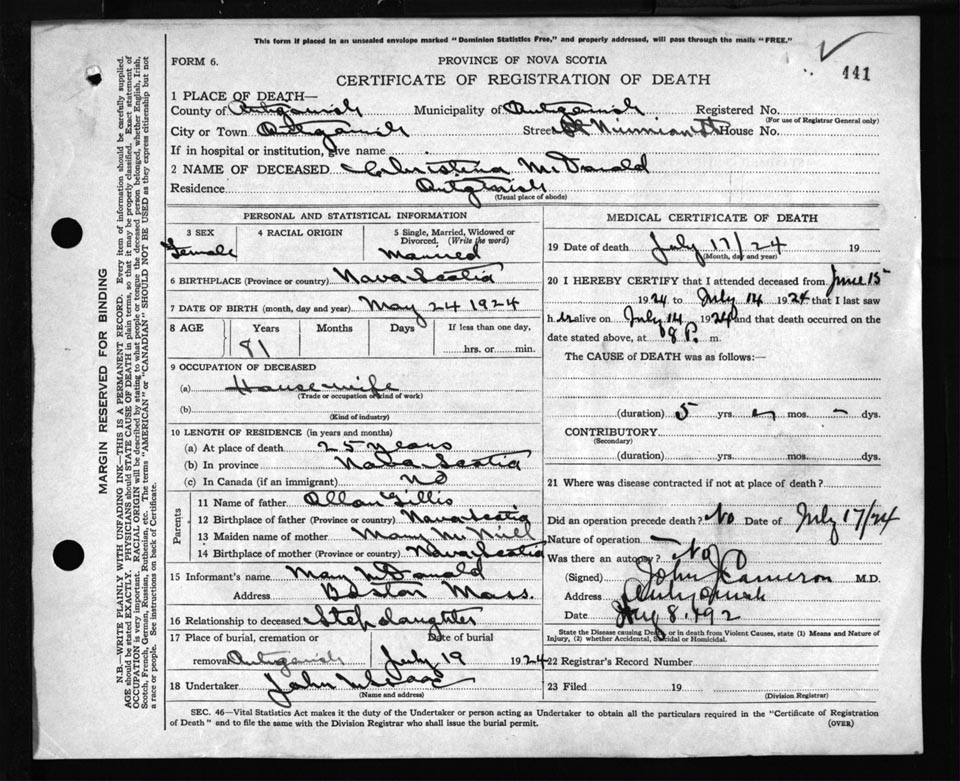 This form if placed in an unsealed envelope marked "Dominion Statistics Free," and properly addressed, will pass through the mails "FREE."
441
FORM 6.
PROVINCE OF NOVA SCOTIA
CERTIFICATE OF REGISTRATION OF DEATH
1 PLACE OF DEATH—
County of Antigonish Municipality of Antigonish Registered No.
(For use of Registrar General only)
City or Town Antigonish Street St Ninnian St House No.
If in hospital or institution, give name
2 NAME OF DECEASED Christina McDonald
Residence Antigonish
(Usual place of abode)
PERSONAL AND STATISTICAL INFORMATION
3 SEX 4 RACIAL ORIGIN 5 Single, Married, Widowed or Divorced. (Write the word)
Female Married
6 BIRTHPLACE (Province or country) Nova Scotia
7 DATE OF BIRTH (month, day and year) May 24 1924
8 AGE Years Months Days If less than one day,
81 hrs. or min.
9 OCCUPATION OF DECEASED
(a) Housewife
(Trade or occupation or kind of work)
(b)
(Kind of industry)
10 LENGTH OF RESIDENCE (in years and months)
(a) At place of death 25 years
(b) In province Nova Scotia
(c) In Canada (if an immigrant) No
Parents
11 Name of father Allan Gillis
12 Birthplace of father (Province or country) Nova Scotia
13 Maiden name of mother Mary McNeill
14 Birthplace of mother (Province or country) Nova Scotia
15 Informant's name Mary McDonald
Address Boston Mass.
16 Relationship to deceased Stepdaughter
17 Place of burial, cremation or Date of burial
removal Antigonish July 19 1924
18 Undertaker John
(Name and address)
MEDICAL CERTIFICATE OF DEATH
19 Date of death July 17/24 19
(Month, day and year)
20 I HEREBY CERTIFY that I attended deceased from June 15
1924 to July 14 1924 that I last saw
h er alive on July 14 1924 and that death occurred on the
date stated above, at 8 P. m.
The CAUSE of DEATH was as follows:—
(duration) 5 yrs. mos. - dys.
CONTRIBUTORY
(Secondary)
(duration) yrs. mos. dys.
21 Where was disease contracted if not at place of death?
Did an operation precede death? No Date of July 17/24
Nature of operation
Was there an autopsy? No
(Signed) John J Cameron M.D.
Address Antigonish
Date 8, 192
State the Disease causing Death, or in death from Violent Causes, state (1) Means and Nature of
Injury, (2) whether Accidental, Suicidal or Homicidal.
22 Registrar's Record Number
23 Filed 19
(Division Registrar)
SEC. 46—Vital Statistics Act makes it the duty of the Undertaker or person acting as Undertaker to obtain all the particulars required in the "Certificate of Registration
of Death" and to file the same with the Division Registrar who shall issue the burial permit. (OVER)
MARGIN RESERVED FOR BINDING
N.B.—WRITE PLAINLY WITH UNFADING INK—THIS IS A PERMANENT RECORD. Every item of information should be carefully supplied.
AGE should be stated EXACTLY. PHYSICIANS should STATE CAUSE OF DEATH in plain terms, so that it may be properly classified. Exact statement of
OCCUPATION is very important. RACIAL ORIGIN will be described by stating to what people or tongue the deceased person belonged, whether English, Irish,
Scotch, French, German, Russian, Ruthenian, etc. The terms "AMERICAN" or "CANADIAN" SHOULD NOT BE USED as they express citizenship but not
a race or people. See instructions on back of Certificate.